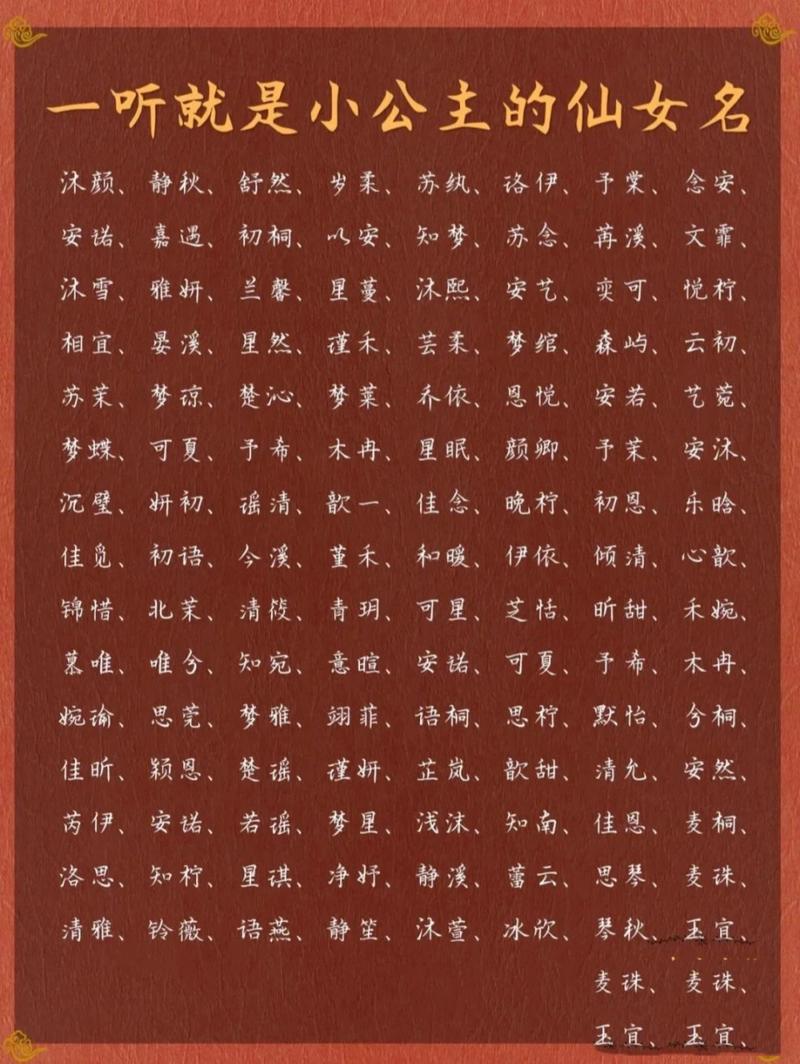 一听就是小公主的仙女名
沐颜、静秋、舒然、岁柔、苏纨、珞伊、予棠、念安、
安诺、嘉遇、初桐、以安、知梦、苏念、苒溪、文霏、
沐雪、雅妍、兰馨、星蔓、沐熙、安艺、奕可、悦柠、
相宜、晏溪、星然、瑾禾、芸柔、梦绾、森屿、云初、
苏茉、梦琼、楚沁、梦葉、乔依、恩悦、安若、艺菀、
梦蝶、可夏、予希、木冉、星眠、颜卿、予茉、安沐、
沉璧、妍初、瑶清、歆一、佳念、晚柠、初恩、乐晗、
佳觅、初语、今溪、堇禾、和暖、伊依、倾清、心歆、
锦惜、北茉、清筱、青玥、可星、芝恬、昕甜、禾婉、
慕唯、唯兮、知宛、意暄、安诺、可夏、予希、木冉、
婉瑜、思莞、梦雅、翊菲、语桐、思柠、默怡、兮桐、
佳昕、颖恩、楚瑶、瑾妍、芷岚、歆甜、清允、安然、
芮伊、安诺、若瑶、梦星、浅沫、知南、佳恩、麦桐、
洛思、知柠、星琪、净妤、静溪、蕾云、思琴、麦珠、
清雅、铃薇、语燕、静笙、沐萱、冰欣、琴秋、玉宜、
麦珠、麦珠、
玉宜、玉宜、